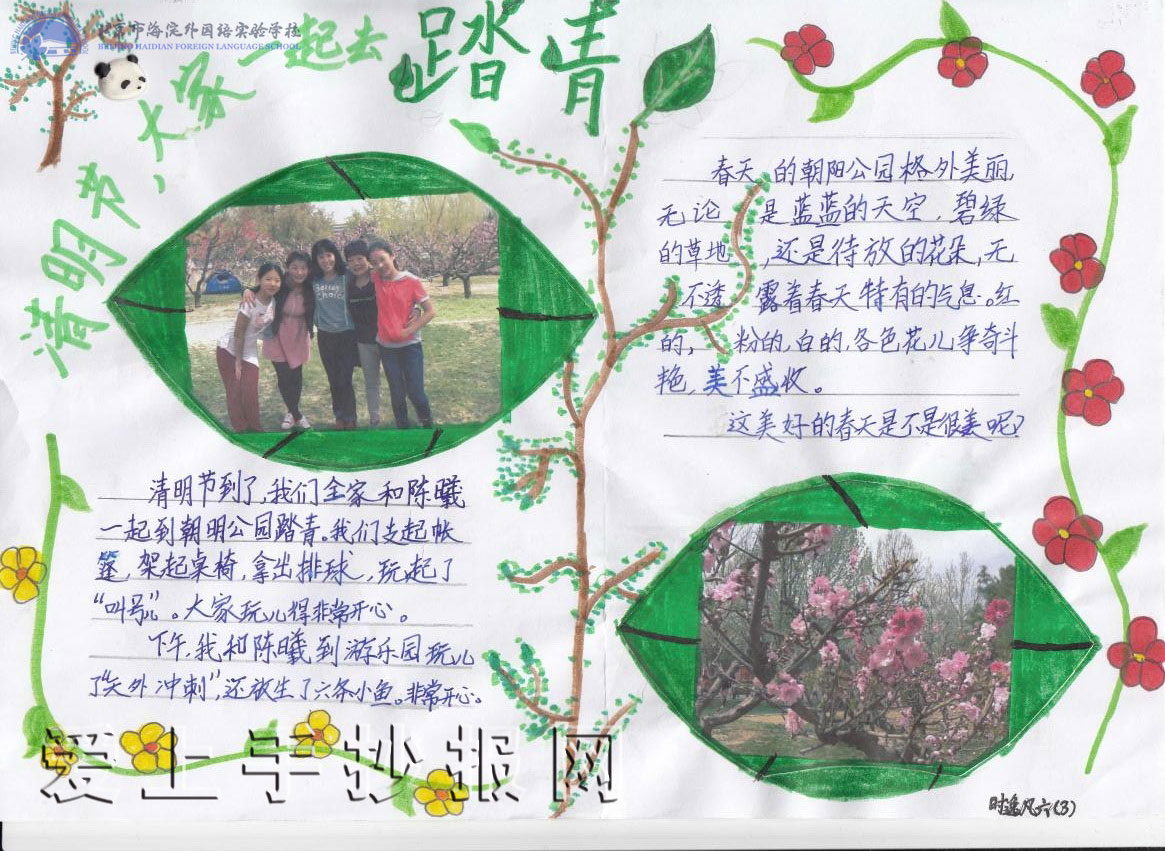 北京市海淀外国语实验学校
BEIJING HAIDIAN FOREIGN LANGUAGE SCHOOL
清明节,大家一起去踏青
清明节到了,我们全家和陈曦
一起到朝明公园踏青。我们支起帐
篷,架起桌椅,拿出排球,玩起了
“叫号”。大家玩儿得非常开心。
下午,我和陈曦到游乐园玩儿
了“天外冲刺”,还放生了六条小鱼。非常开心。
春天的朝阳公园格外美丽,
无论是蓝蓝的天空,碧绿
的草地,还是待放的花朵,无
不透露着春天特有的气息。红
的,粉的,白的,各色花儿争奇斗
艳,美不盛收。
这美好的春天是不是很美呢?
时逸凡六(3)
爱上手抄报网